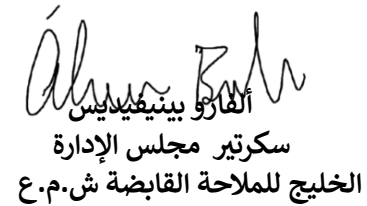 ألفارو بينيفيديس
سكرتير مجلس الإدارة
الخليج للملاحة القابضة ش.م.ع